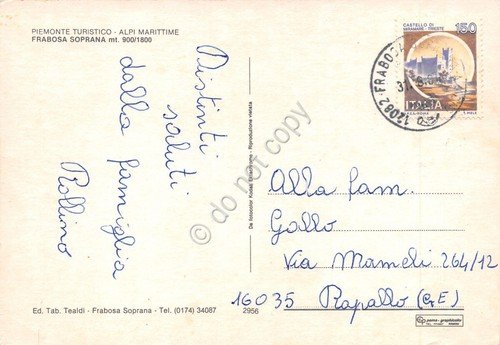 PIEMONTE TURISTICO - ALPI MARITTIME
FRABOSA SOPRANA mt. 900/1800
Distinti
saluti
dalla famiglia
Rollino
Ed. Tab. Tealdi - Frabosa Soprana - Tel. (0174) 34087
2956
Da fotocolor Kodak Ektachrome - Riproduzione vietata
CASTELLO DI
MIRAMARE - TRIESTE
150
ITALIA
12082 - FRABOSA
Alla fam.
Gallo
Via Mameli 264/12
16035 Rapallo (GE)
© do not copy